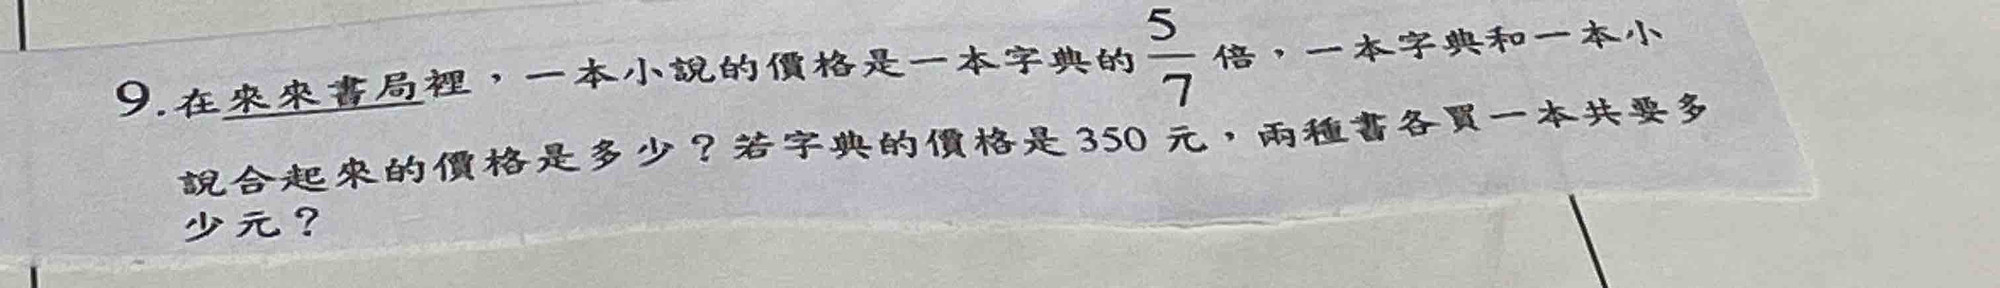 9.在來來書局裡，一本小說的價格是一本字典的 5/7 倍，一本字典和一本小
說合起來的價格是多少？若字典的價格是 350 元，兩種書各買一本共要多
少元？